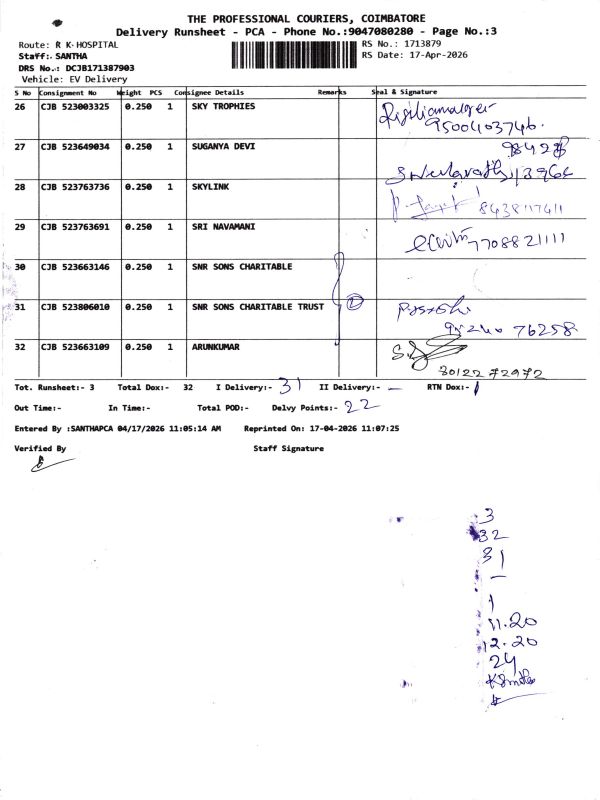 THE PROFESSIONAL COURIERS, COIMBATORE
Delivery Runsheet - PCA - Phone No.:9047080280 - Page No.:3
Route: R K-HOSPITAL
RS No.: 1713879
Staff: SANTHA
RS Date: 17-Apr-2026
DRS No.: DCJB171387903
Vehicle: EV Delivery
S No Consignment No Weight PCS Consignee Details Remarks Seal & Signature
26 CJB 523003325 0.250 1 SKY TROPHIES
9500403746.
27 CJB 523649034 0.250 1 SUGANYA DEVI
28 CJB 523763736 0.250 1 SKYLINK
29 CJB 523763691 0.250 1 SRI NAVAMANI
7708821111
30 CJB 523663146 0.250 1 SNR SONS CHARITABLE
31 CJB 523806010 0.250 1 SNR SONS CHARITABLE TRUST 2
76258
32 CJB 523663109 0.250 1 ARUNKUMAR
72972
Tot. Runsheet:- 3 Total Dox:- 32 I Delivery:- 31 II Delivery:- — RTN Dox:- 1
Out Time:- In Time:- Total POD:- Delvy Points:- 22
Entered By :SANTHAPCA 04/17/2026 11:05:14 AM Reprinted On: 17-04-2026 11:07:25
Verified By Staff Signature
3
32
31
—
1
11.20
12.20
24